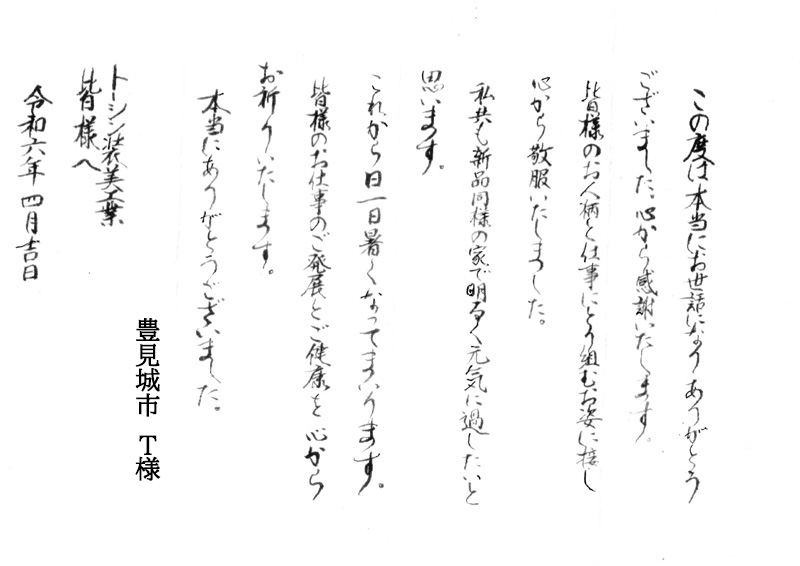 この度は本当にお世話になりありがとう
ございました。心から感謝いたします。
皆様のお人柄と仕事にとり組むお姿に接し
心から敬服いたしました。
私共も新品同様の家で明るく元気に過したいと
思います。
これから日一日暑くなってまいります。
皆様のお仕事のご発展とご健康を心から
お祈りいたします。
本当にありがとうございました。
豊見城市 T様
トーシン装美工業
皆様へ
令和六年 四月吉日